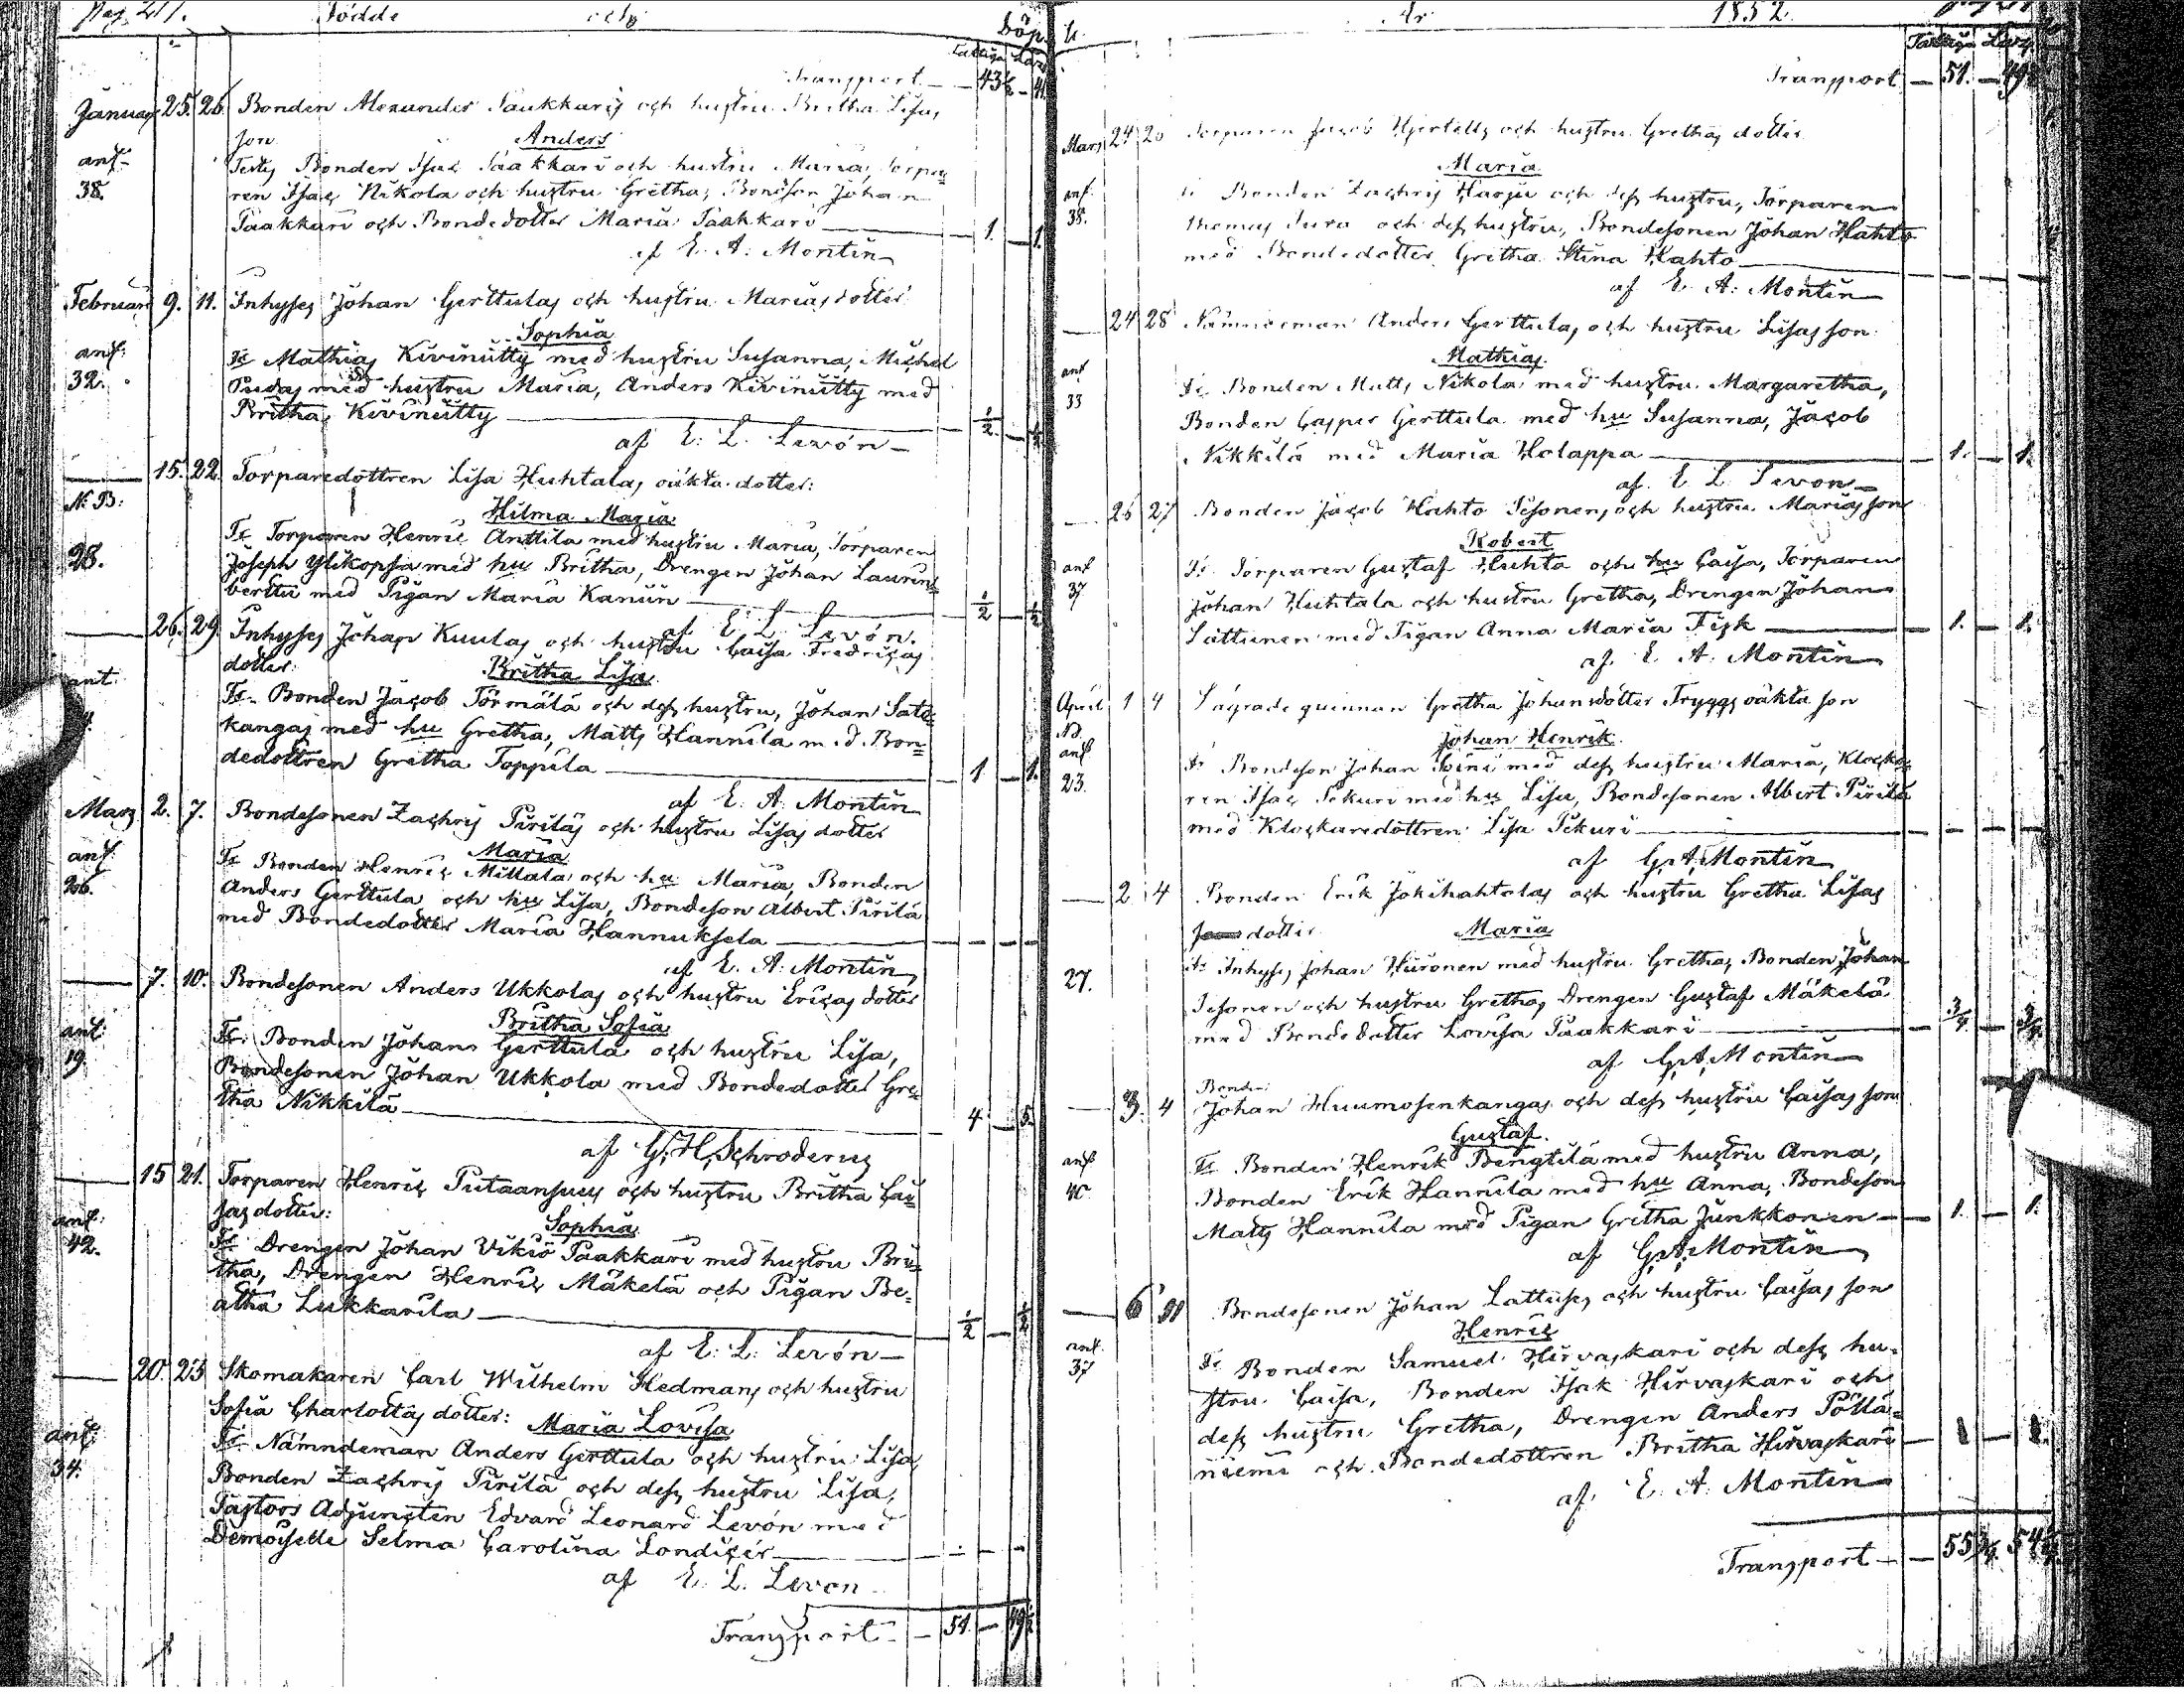 Pag. 211. Födde och Döp-
Fattiga Laz.
Transport — 43½ — 41.
Januar 25. 26. Bonden Alexander Paakkaris och hustru Britha Lisas
son Anders
anf. 38.
Testes Bonden Isac Paakkari och hustru Maria, Torpa-
ren Isac Nikola och hustru Gretha, Bondson Johan
Paakkari och Bondedotter Maria Paakkari — 1. — 1.
af E. A. Montin
Februari 9. 11. Inhyses Johan Gerttulas och hustru Marias dotter
Sophia
anf. 32.
Ts Mathias Kivinütty med hustru Susanna, Michel
Pudas med hustru Maria, Anders Kivinütty med
Britha Kivinütty — ½ — ½
af E. L. Levón
— 15. 22. Torparedottren Lisa Huhtalas oäkta dotter:
N.B. Hilma Maria
28.
Ts Torparen Henric Anttila med hustru Maria, Torparen
Joseph Ylikopsa med hu Britha, Drengen Johan Laurin-
berttu med Pigan Maria Kanün — ½ — ½
af E. L. Levón.
— 26. 29. Inhyses Johan Kuulas och hustru Caisa Fredricas
dotter: Britha Lisa
anf.
Ts. Bonden Jacob Törmälä och dess hustru, Johan Sato-
kangas med hu Gretha, Matts Hannila med Bon-
dedottren Gretha Toppila — 1 — 1.
af E. A. Montin
Mars 2. 7. Bondesonen Zachris Pirilas och hustru Lisas dotter
Maria
anf. 26.
Ts Bonden Henric Mittala och hu Maria, Bonden
Anders Gerttula och hu Lisa, Bondeson Albert Pirilä
med Bondedotter Maria Hannuksela
af E. A. Montin
— 7. 10. Bondesonen Anders Ukkolas och hustru Ericas dotter
Britha Sofia
anf. 19
Ts. Bonden Johans Gerttula och hustru Lisa,
Bondesonen Johan Ukkola med Bondedotter Gre-
tha Nikkilä — 4 — 5.
af G. H. Schroderus
— 15 21. Torparen Henric Putaansuus och hustru Britha Cai-
sas dotter: Sophia
anf. 42.
Ts Drengen Johan Vikiö Paakkari med hustru Bri-
tha, Drengen Henric Mäkelä och Pigan Be-
atha Lukkarila — ½ — ½
af E. L. Levón
— 20. 23 Skomakaren Carl Wilhelm Hedmans och hustru
Sofia Charlottas dotter: Maria Lovisa
anf. 34.
Ts Nämndeman Anders Gerttula och hustru Lisa,
Bonden Zachris Pirilä och dess hustru Lisa,
Pastors Adjuncten Edvard Leonard Levón med
Demoiselle Selma Carolina Londicér
af E. L. Levon
Transport — 51. — 49½
År 1852.
Fattiga Laz.
Transport — 51. — 49½
Mars 24 26 Torparen Jacob Hjertells och hustru Grethas dotter
Maria
anf. 35.
Bonden Zachris Harju och dess hustru, Torparen
Thomas Jura och dess hustru, Bondesonen Johan Hahto
med Bondedotter Gretha Stina Hahto
af E. A. Montin
— 24 28 Nämndeman Anders Gerttulas och hustru Lisas son
Mathias.
anf 33
Ts. Bonden Matts Nikola med hustru Margaretha,
Bonden Casper Gerttula med hu Susanna, Jacob
Nikkilä med Maria Holappa — 1. — 1.
af. E. L. Levon
— 26 27 Bonden Jacob Hahto Isonens och hustru Marias son
Robert
anf 37
Ts. Torparen Gustaf Huhta och hu Caisa, Torparen
Johan Huhtala och hustru Gretha, Drengen Johan
Lattunen med Pigan Anna Maria Fisk — 1. — 1.
af. E. A. Montin
April 1 4 Lägrade quinnan Gretha Johansdotter Tryggs oäkta son
NB. Johan Henrik.
anf 23.
Ts Bondeson Johan Soini med dess hustru Maria, Klocka-
ren Isac Pekuri med hu Lisa, Bondesonen Albert Pirilä
med Klockaredottren Lisa Pekuri
af G. A. Montin
— 2 4 Bonden Erik Jokihahtolas och hustru Gretha Lisas
dotter Maria
27.
Ts Inhyses Johan Huronen med hustru Gretha, Bonden Johan
Isonen och hustru Gretha, Drengen Gustaf Mäkelä
med Bondedotter Lovisa Paakkari — ¾ — ¾
af G. A. Montin
Bonden
— 3. 4 Johan Huumosenkangas och dess hustru Caisas son
Gustaf.
anf 40.
Ts Bonden Henrik Bengtilä med hustru Anna,
Bonden Erik Hannila med hu Anna, Bondeson
Matts Hannila med Pigan Gretha Junkkonen — 1. — 1.
af G. A. Montin
— 6 Bondesonen Johan Lattuses och hustru Caisas son
Henric
anf. 37
Ts. Bonden Samuel Hirvaskari och dess hu-
stru Caisa, Bonden Isak Hirvaskari och
dess hustru Gretha, Drengen Anders Pölla-
niemi och Bondedottren Britha Hirvaskari — 1 — 1.
af. E. A. Montin
Transport — 55¾. 54¼